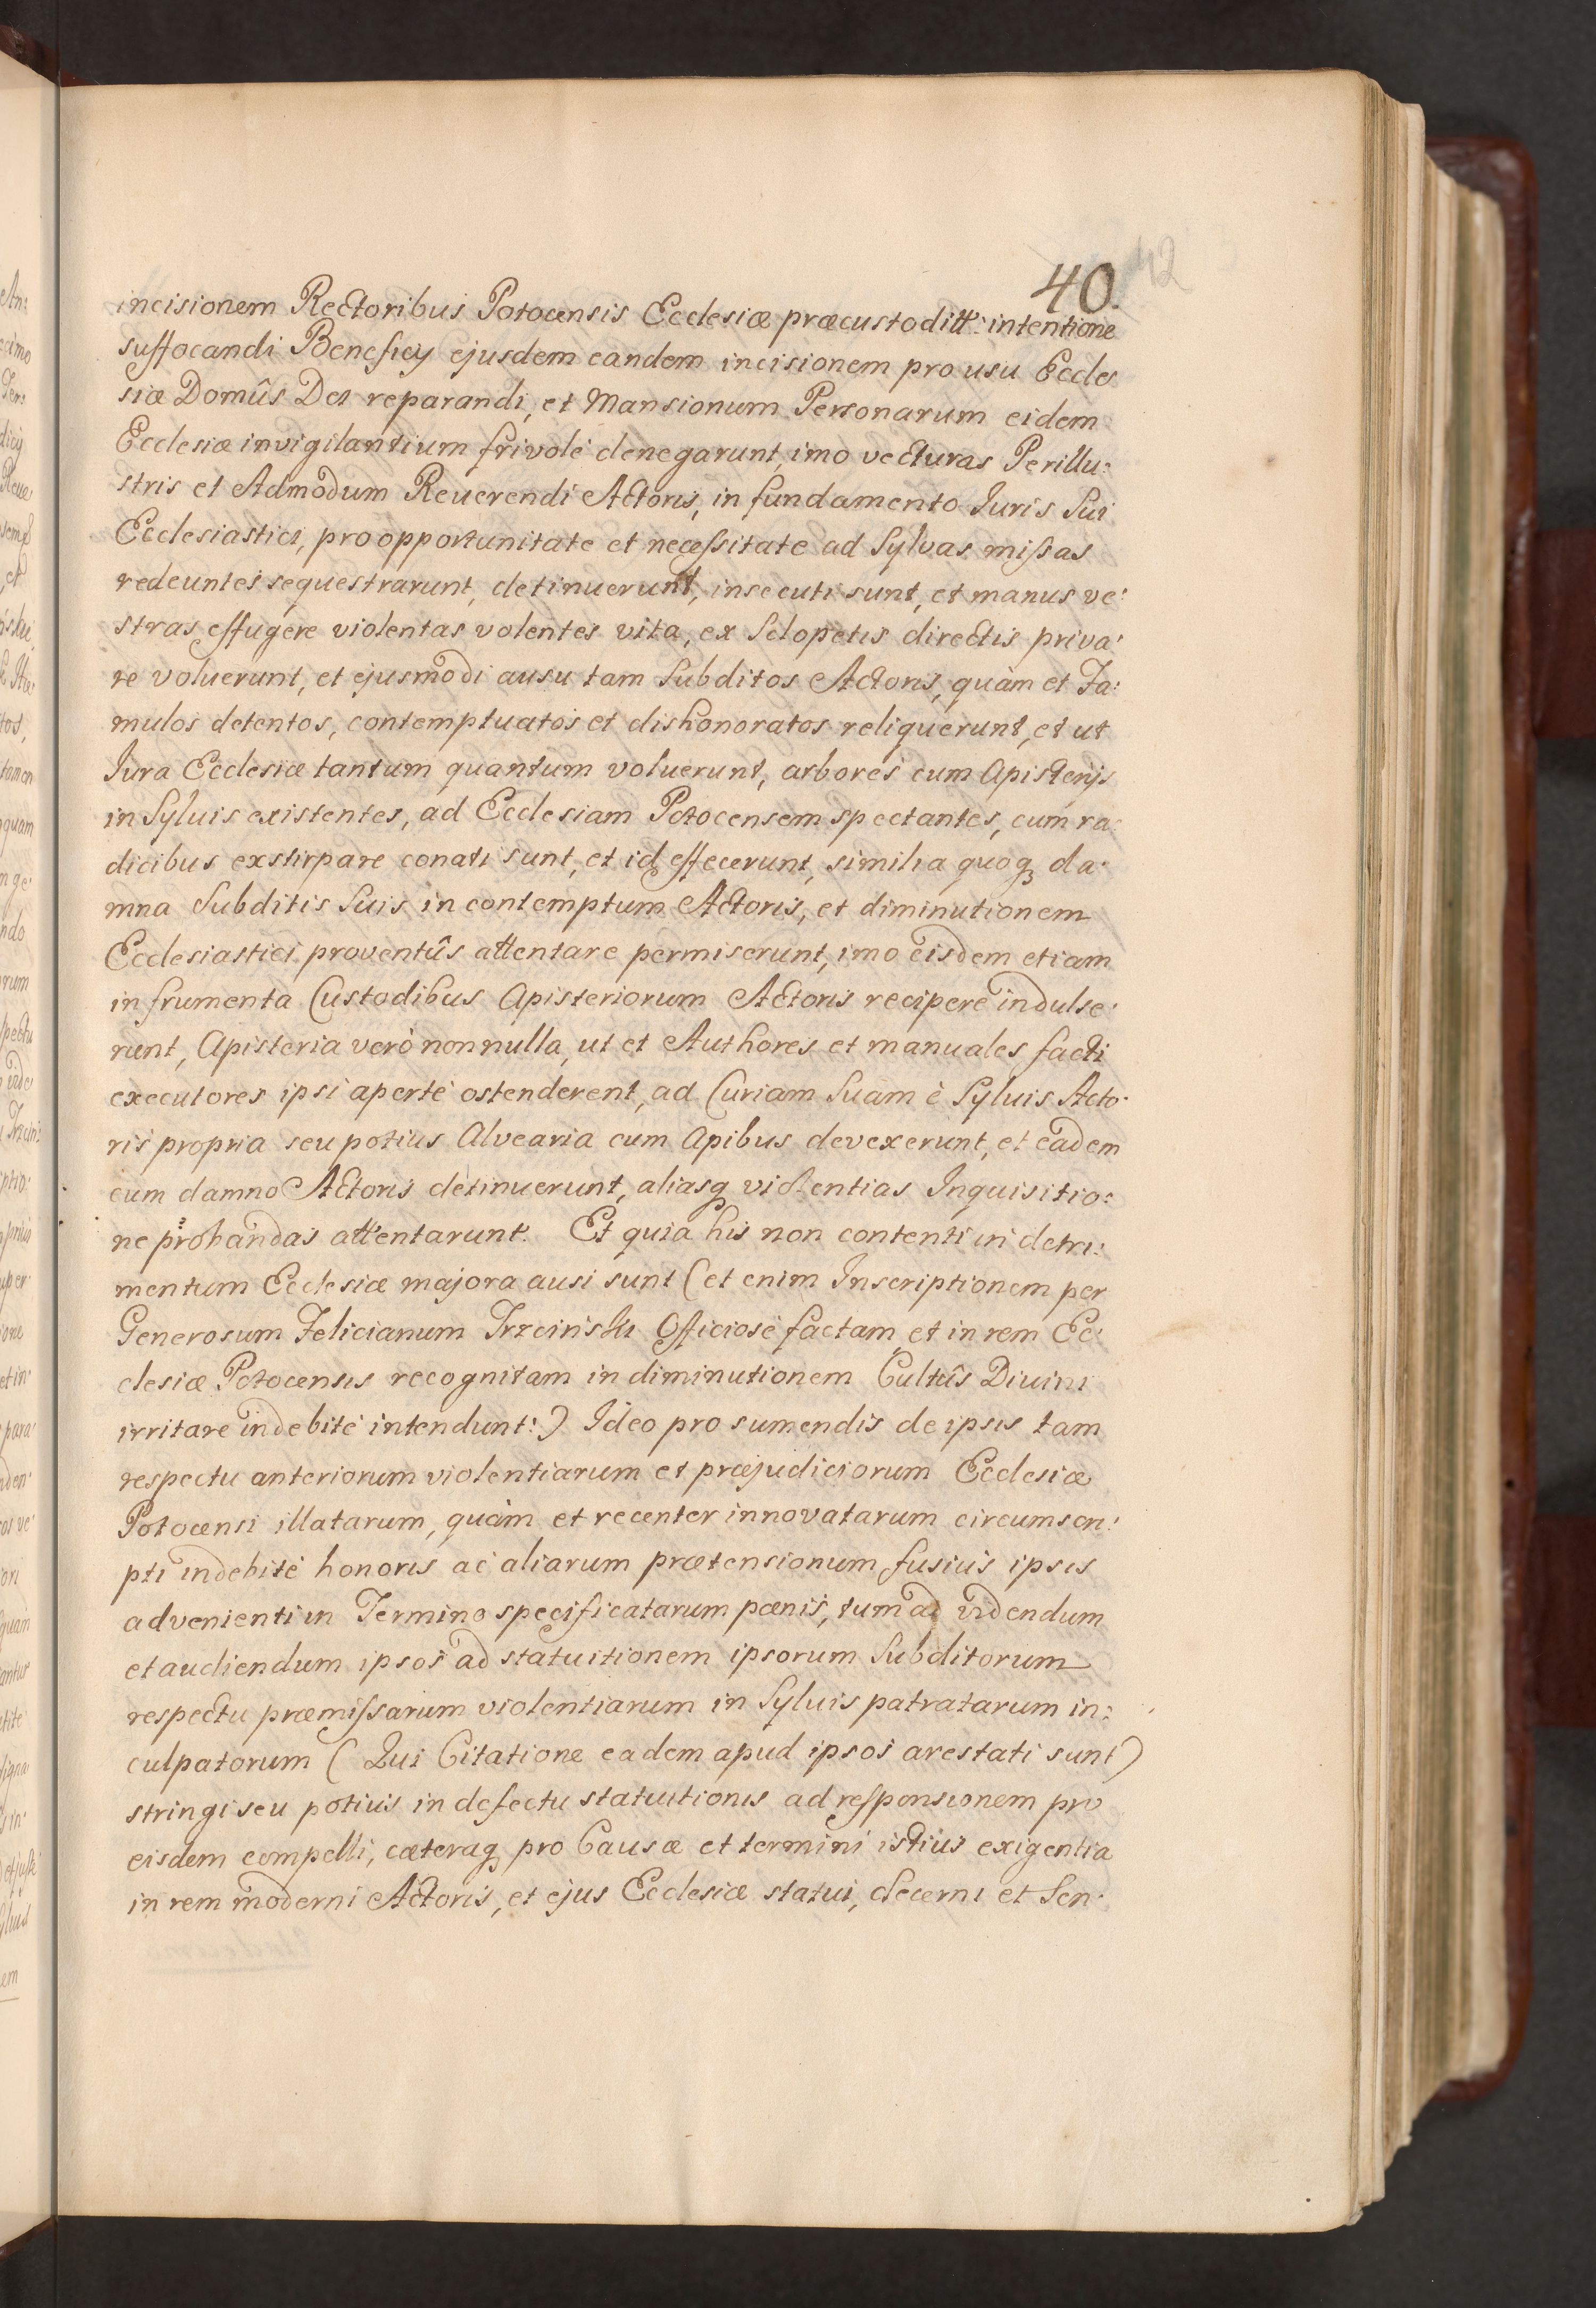 40.
42
incisionem Rectoribus Potocensis Ecclesiæ præcustoditt: intentione
suffocandi Beneficy ejusdem eandem incisionem pro usu Eccle
siæ Domûs Dei reparandi, et Mansionum Personarum eidem
Ecclesiæ invigilantium frivolè denegarunt, imo vecturas Perillu:
stris et Admodum Reuerendi Actoris, in fundamento Iuris Sui
Ecclesiastici, pro opportunitate et necessitate ad Sylvas missas
redeuntes sequestrarunt, detinuerunt, insecuti sunt, et manus ve:
stras effugere violentas volentes vita, ex Sclopetis directis priva:
re voluerunt, et ejusmodi ausu tam Subditos Actoris, quàm et Fa:
mulos detentos, contemptuatos et dishonoratos reliquerunt, et ut
Iura Ecclesiæ tantum quantum voluerunt, arbores cum Apisterijs
in Syluis existentes, ad Ecclesiam Potocensem spectantes, cum ra:
dicibus exstirpare conati sunt, et id effecerunt, similia quoq da:
mna Subditis Suis in contemptum Actoris, et diminutionem
Ecclesiastici proventûs attentare permiserunt, imo eisdem etiam
in frumenta Custodibus Apisteriorum Actoris recipere indulse:
runt, Apisteria verò nonnulla, ut et Authores et manuales facti
executores ipsi apertè ostenderent, ad Curiam Suam è Syluis Acto:
ris propria seu potius Alvearia cum Apibus devexerunt, et eadem
cum damno Actoris detinuerunt, aliasq violentias Inquisitio:
ne probandas attentarunt. Et quia his non contenti in detri:
mentum Ecclesiæ majora ausi sunt (et enim Inscriptionem per
Generosum Felicianum Trzcinski Officiosè factam, et in rem Ec:
clesiæ Potocensis recognitam in diminutionem Cultûs Diuini
irritare indebitè intendunt:) Ideo pro sumendis de ipsis tam
respectu anteriorum violentiarum et præjudiciorum Ecclesiæ
Potocensi illatarum, quàm et recenter innovatarum circumscri:
pti indebitè honoris ac aliarum prætensionum fusius ipsis
advenienti in Termino specificatarum pænis, tum ad videndum
et audiendum ipsos ad statuitionem ipsorum Subditorum
respectu præmissarum violentiarum in Syluis patratarum in:
culpatorum (Qui Citatione eadem apud ipsos arestati sunt)
stringi seu potius in defectu statuitionis ad responsionem pro
eisdem compelli, cæteraq pro Causæ et termini istius exigentia
in rem moderni Actoris, et ejus Ecclesiæ statui, decerni et Sen: